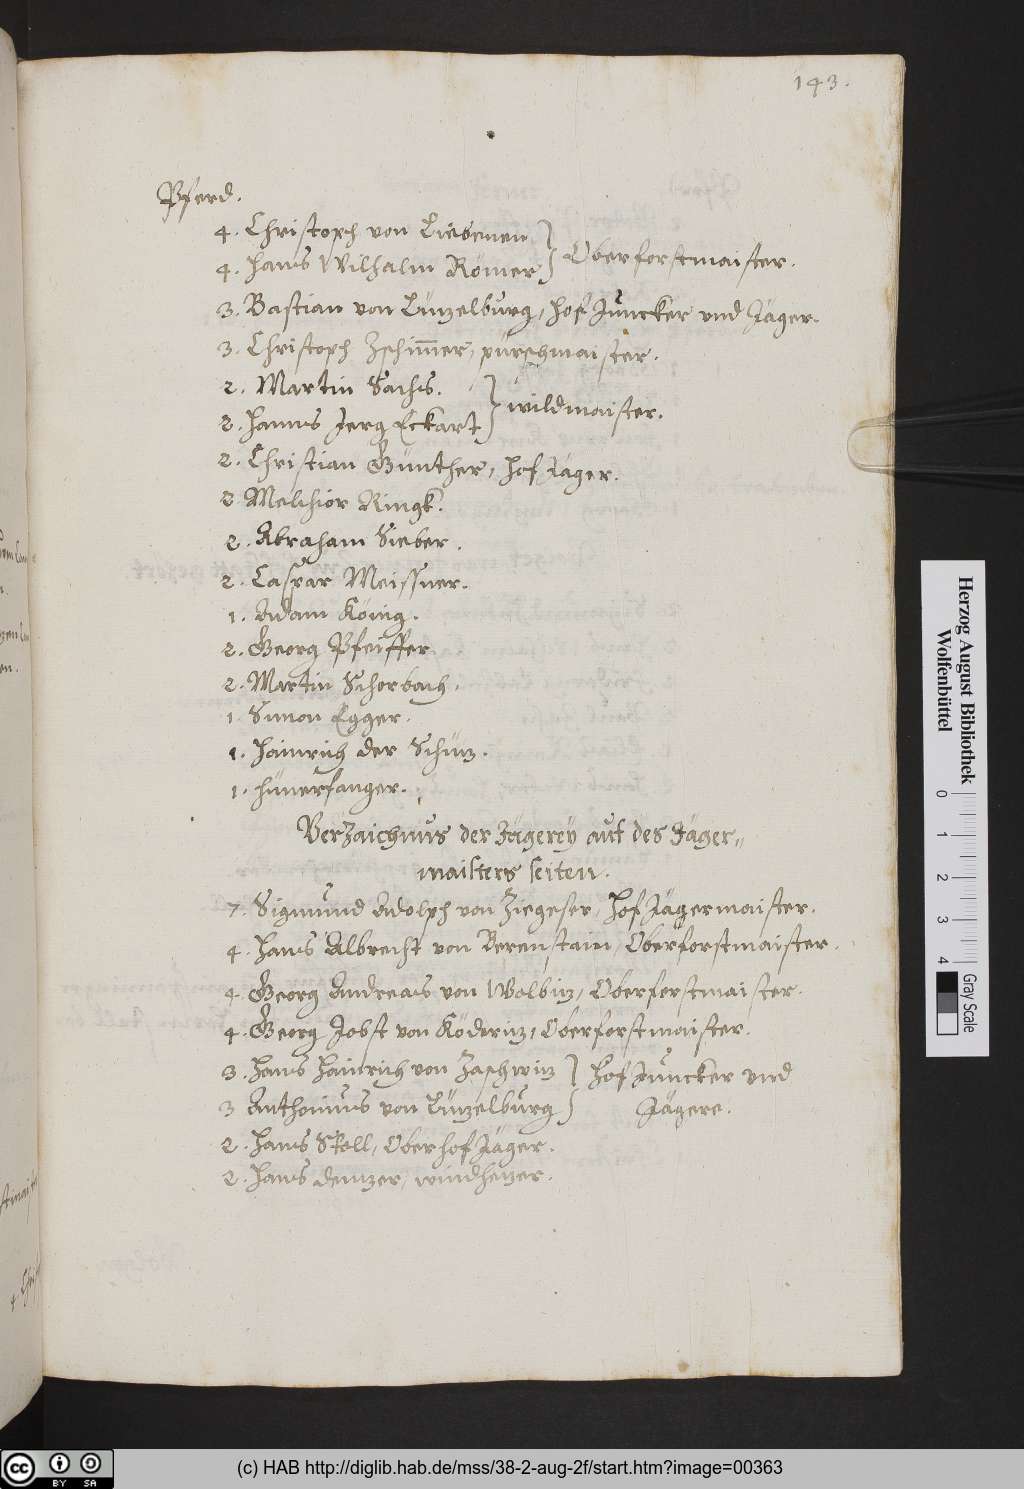 143.
Pferd.
4. Christoph von Liebenen
4. Hans Wilhalm Römer } Oberforstmaister.
3. Bastian von Lünzelburg, Hof Juncker vnd Jäger.
3. Christoph Zschimmer, pürschmaister.
2. Martin Sachs.
2. Hanns Jerg Eckart } wildmaister.
2. Christian Günther, Hof Jäger.
2 Melchior Ringk.
2. Abraham Sieber.
2. Caspar Meissner.
1. Adam König.
2. Georg Pfeiffer
2. Martin Schorbach.
1. Simon Egger.
1. Hainrich der Schüz.
1. Hünerfanger.
Verzaichnus der Jägerey auf des Jäger=
maisters seiten.
7. Sigmund Adolph von Ziegeser, Hof Jägermaister.
4. Hans Albrecht von Berenstain, Oberforstmaister.
4. Georg Andreas von Wolbiz, Oberforstmaister.
4. Georg Jobst von Ködriz, Oberforstmaister.
3. Hans Hainrich von Zaschwiz } Hof Juncker vnd
3 Anthonius von Lünzelburg } Jägere.
2. Hans Stoll, Oberhof Jäger.
2. Hans denzer, windhezer.
Herzog August Bibliothek
Wolfenbüttel
0 1 2 3 4
Gray Scale
cc BY SA
(c) HAB http://diglib.hab.de/mss/38-2-aug-2f/start.htm?image=00363